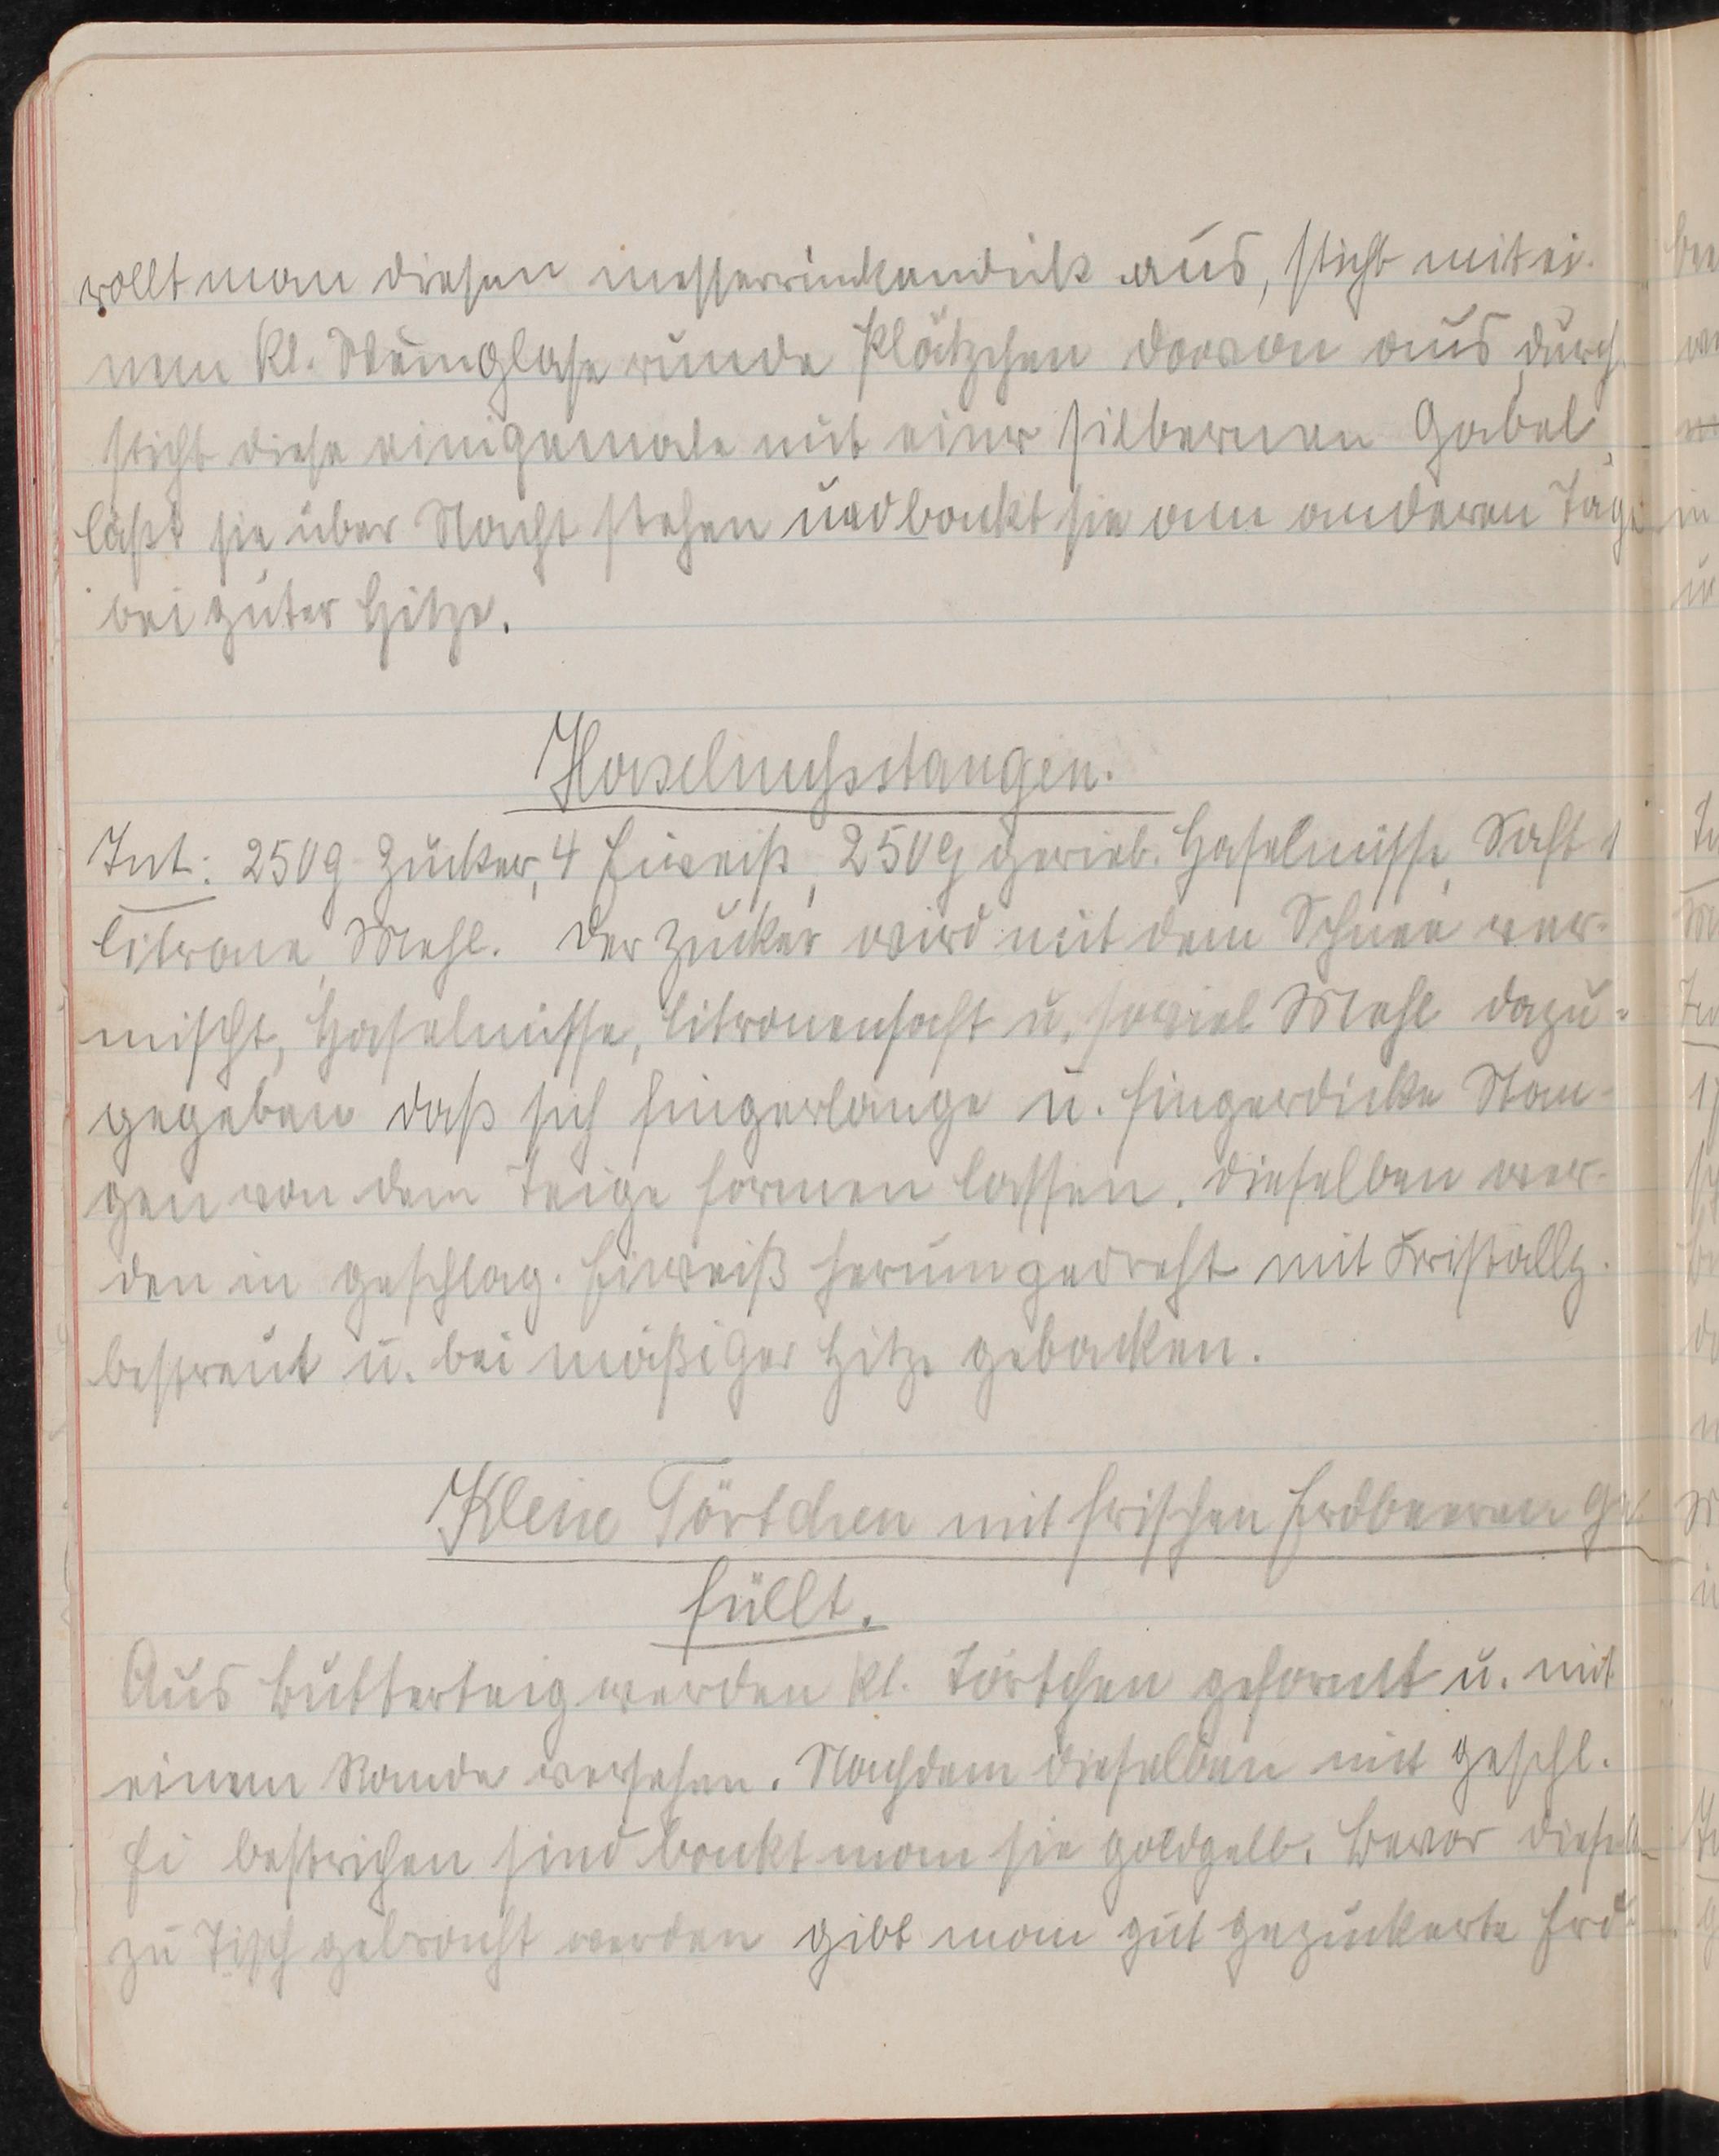 rollt man diesen messerrückendick aus, sticht mit ei-
nem kl. Weinglase runde Plätzchen davon aus, durch
sticht diese einigemale mit einer silbernen Gabel,
läßt sie über Nacht stehen und backt sie am anderen Tage
bei guter Hitze.
Haselnussstangen.
Zut: 250 g Zucker, 4 Eiweiß, 250 g gerieb. Haselnüsse, Saft 1
Citrone, Mehl. Der Zucker wird mit dem Schnee ver-
mischt, Haselnüsse, Citronensaft u. soviel Mehl dazu-
gegeben daß sich fingerlange u. fingerdicke Stan-
gen von dem Teige formen lassen. Dieselben wer-
den in geschlag. Eiweiß herumgedreht mit Kristallz.
bestreut u. bei mäßiger Hitze gebacken.
Kleine Törtchen mit frischen Erdbeeren ge-
füllt.
Aus Butterteig werden kl. Törtchen geformt u. mit
einem Rande versehen. Nachdem dieselben mit geschl.
Ei bestrichen sind backt man sie goldgelb. Bevor dieselben
zu Tisch gebracht werden gibt man gut gezuckerte Erd-